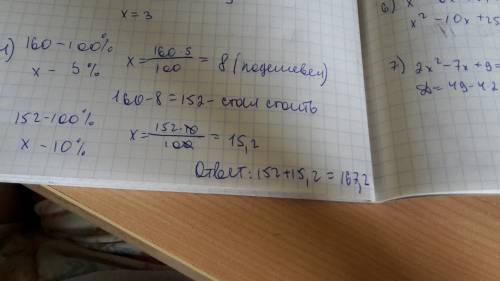 x = 3
1) 160 - 100%
x - 5%
x = 160·5/100 = 8 (подешевел)
160 - 8 = 152 - стал стоить
152 - 100%
x - 10%
x = 152·10/100 = 15,2
Ответ: 152 + 15,2 = 167,2
6)
x² - 10x + 25
7) 2x² - 7x + 9 =
D = 49 - 4·2